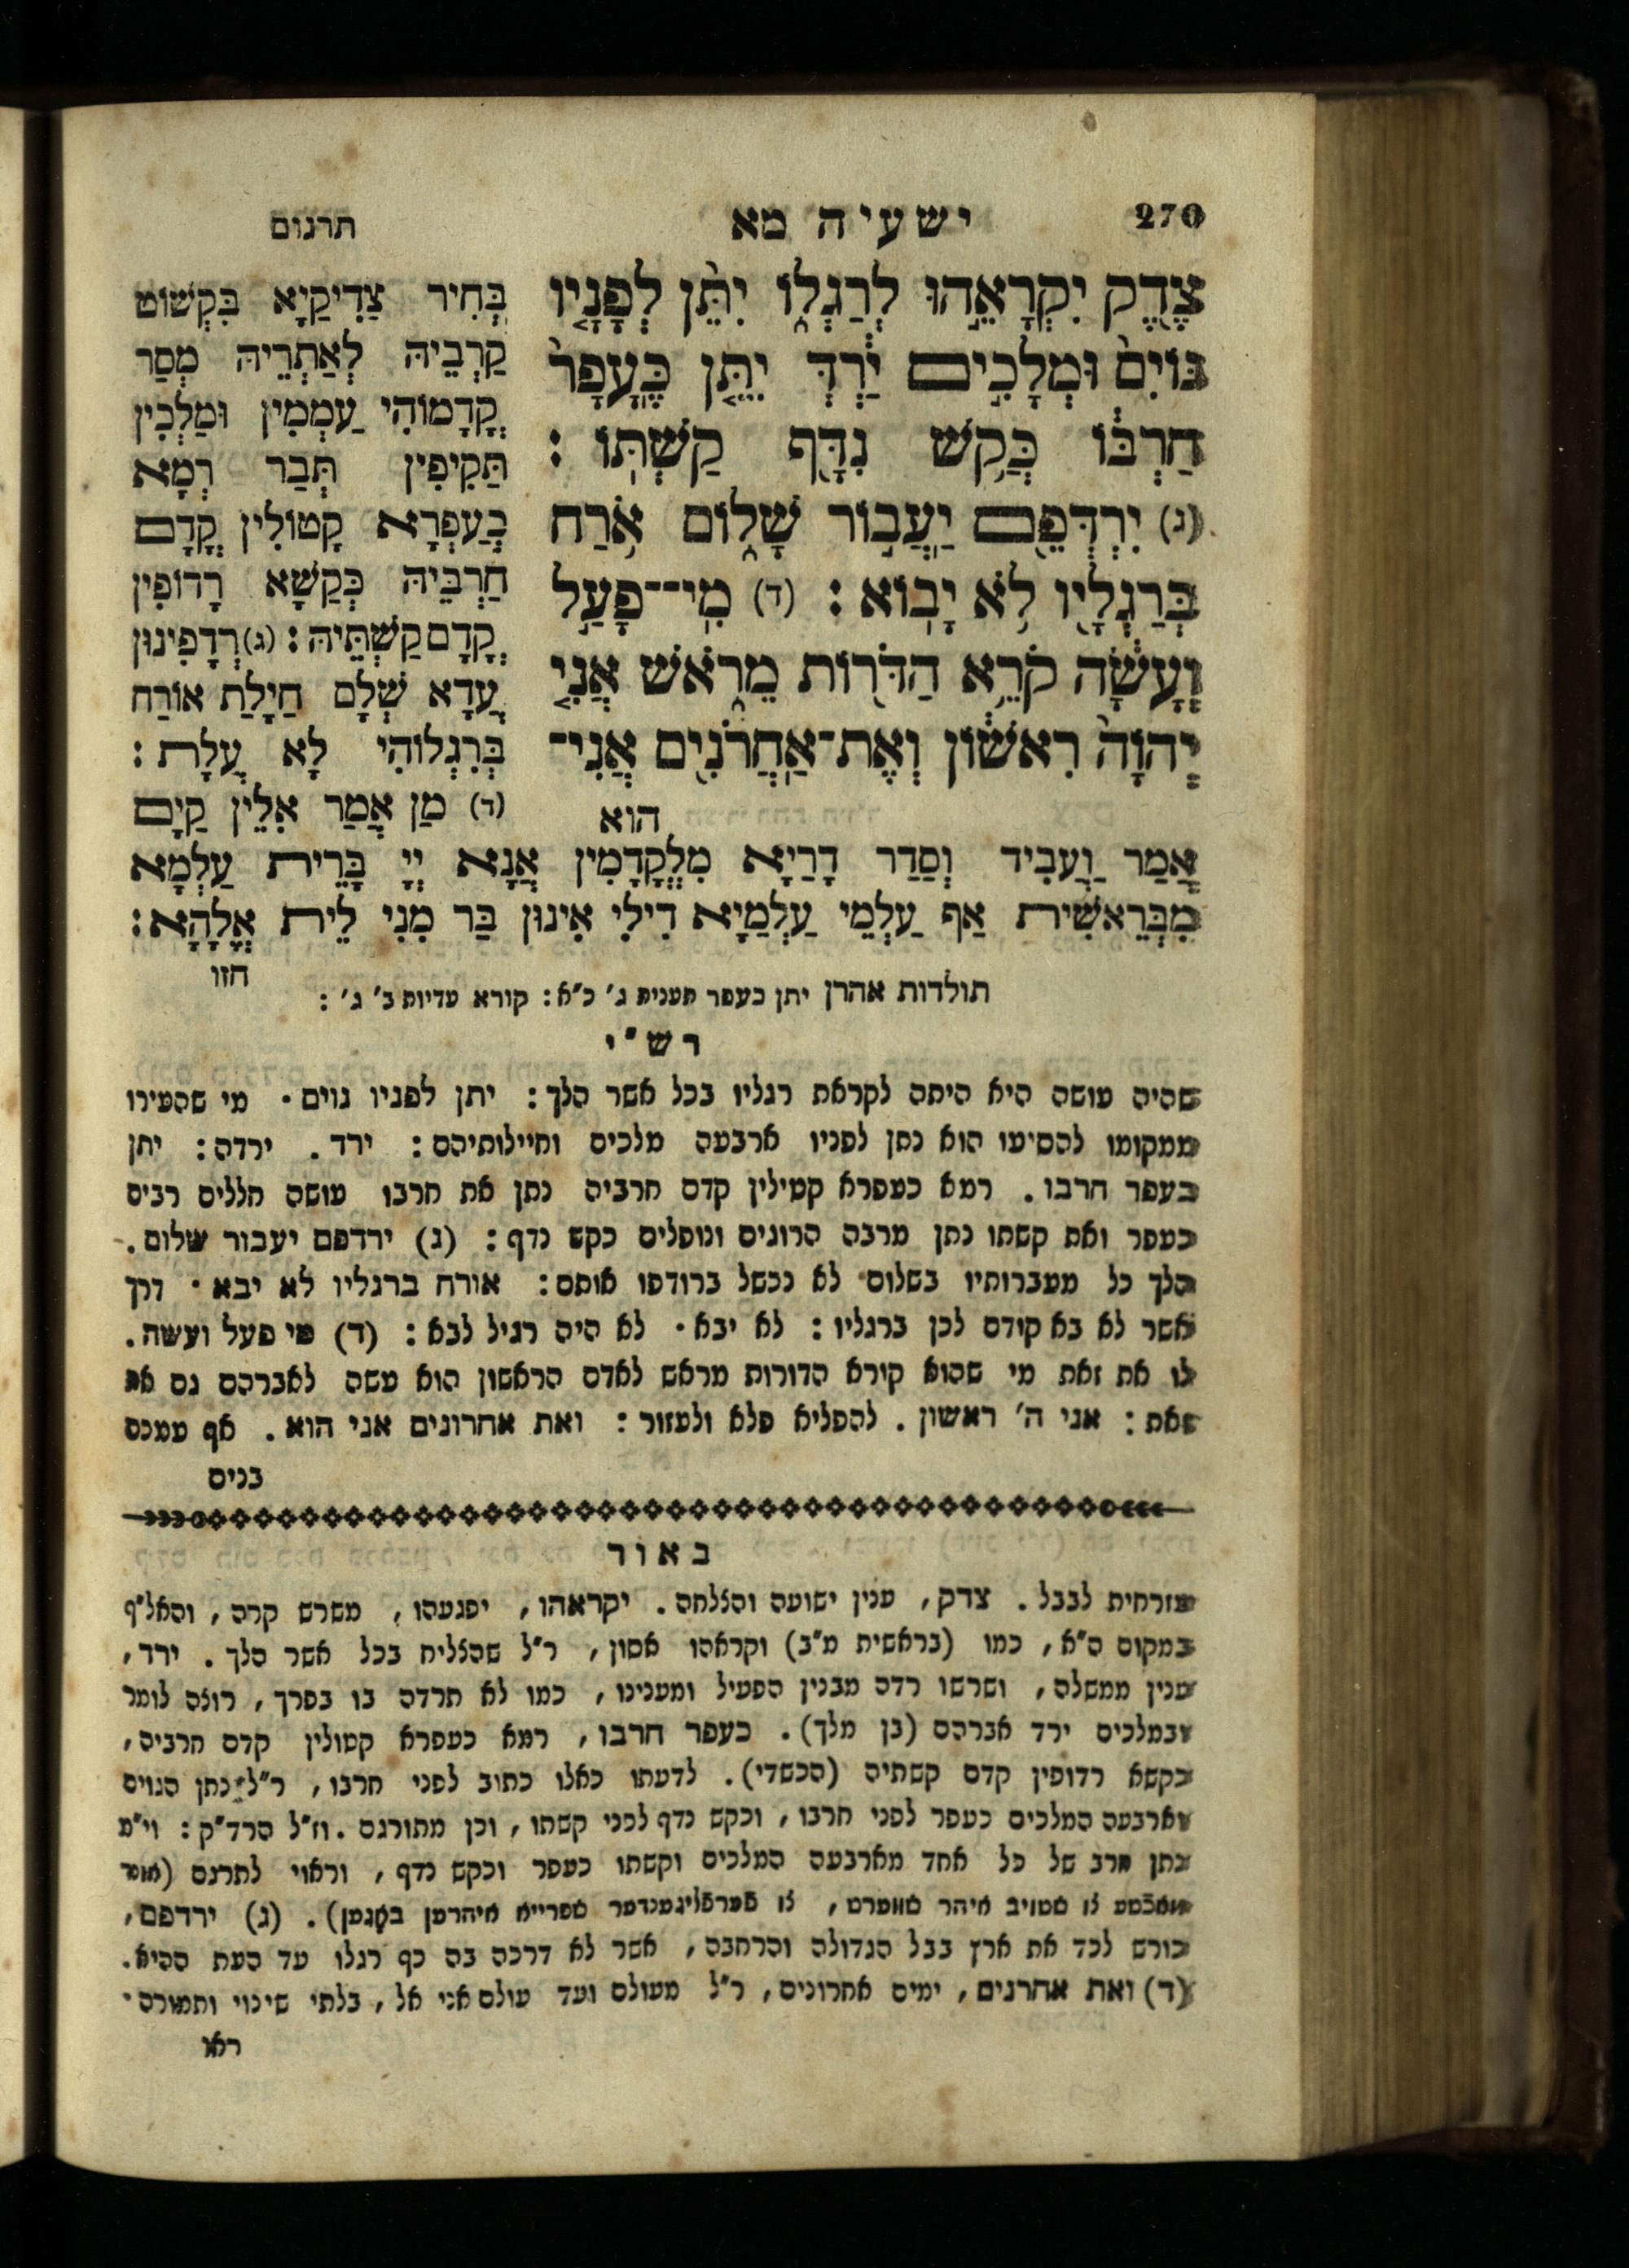 270
ישעיה מא
תרגום
צֶ֖דֶק יִקְרָאֵ֣הוּ לְרַגְל֑וֹ יִתֵּ֨ן לְפָנָ֤יו
גּוֹיִם֙ וּמְלָכִ֣ים יַ֔רְדְּ יִתֵּ֤ן כֶּֽעָפָר֙
חַרְבּ֔וֹ כְּקַ֥שׁ נִדָּ֖ף קַשְׁתּֽוֹ :
(ג) יִרְדְּפֵ֖ם יַעֲב֣וֹר שָׁל֑וֹם אֹ֥רַח
בְּרַגְלָ֖יו לֹ֥א יָבֽוֹא : (ד) מִֽי־פָעַ֣ל
וְעָשָׂ֔ה קֹרֵ֥א הַדֹּר֖וֹת מֵרֹ֑אשׁ אֲנִ֤י
יְהוָֹה֙ רִאשׁ֔וֹן וְאֶת־אַחֲרֹנִ֖ים אֲנִי־
הוא
בְּחִיר צַדִיקַיָא בִּקְשׁוֹט
קַרְבֵיהּ לְאַתְרֵיהּ מְסַר
קֳדָמוֹהִי עַמְמִין וּמַלְכִין
תַּקִיפִין תְּבַר רְמָא
כְעַפְרָא קְטוֹלִין קֳדָם
חַרְבֵּיהּ כְּקַשָׁא רָדוֹפִין
קֳדָם קַשְׁתֵּיהּ : (ג) רְדָפִינוּן
עֲדָא שְׁלָם חֵילַת אוֹרַח
בְּרִגְלוֹהִי לָא עֲלָת :
(ד) מַן אֲמַר אִלֵין קַיָם
אֲמַר וַעֲבִיד וְסַדַר דָרַיָא מִלְקֳדָמִין אֲנָא יְיָ בָּרֵית עַלְמָא
מִבְּרֵאשִׁית אַף עַלְמֵי עַלְמַיָא דִילִי אִינוּן בַּר מִנִי לֵית אֱלָהָא :
חזו
תולדות אהרן יתן כעפר תענית ג׳ כ״א : קורא עדיות ב׳ ג׳ :
רש״י
שהיה עושה היא היתה לקראת רגליו בכל אשר הלך : יתן לפניו גוים . מי שהעירו
ממקומו להסיעו הוא נתן לפניו ארבעה מלכים וחיילותיהם : ירד . ירדה : יתן
כעפר חרבו . רמא כעפרא קטילין קדם חרביה נתן את חרבו עושה חללים רבים
כעפר ואת קשתו נתן מרבה הרוגים ונופלים כקש נדף : (ג) ירדפם יעבור שלום .
הלך כל מעברותיו בשלום לא נכשל ברודפו אותם : אורח ברגליו לא יבא . דרך
אשר לא בא קודם לכן ברגליו : לא יבא . לא היה רגיל לבא : (ד) מי פעל ועשה .
לו את זאת מי שהוא קורא הדורות מראש לאדם הראשון הוא עשה לאברהם גם את
זאת : אני ה׳ ראשון . להפליא פלא ולעזור : ואת אחרונים אני הוא . אף עמכם
בנים
באור
מזרחית לבבל . צדק , ענין ישועה והצלחה . יקראהו , יפגעהו , משרש קרה , והאל״ף
במקום ה״א , כמו (בראשית מ״ב) וקראהו אסון , ר״ל שהצליח בכל אשר הלך . ירד ,
ענין ממשלה , ושרשו רדה מבנין הפעיל ומענינו , כמו לא תרדה בו בפרך , רוצה לומר
ובמלכים ירד אברהם (בן מלך) . כעפר חרבו , רמא כעפרא קטולין קדם חרביה ,
כקשא רדופין קדם קשתיה (הכשדי) . לדעתו כאלו כתוב לפני חרבו , ר״ל נתן הגוים
וארבעה המלכים כעפר לפני חרבו , וכקש נדף לפני קשתו , וכן מתורגם . וז״ל הרד״ק : וי״מ
נתן חרב של כל אחד מארבעה המלכים וקשתו כעפר וכקש נדף , וראוי לתרגם (אונד
מאכטע צו שטויב איהר שווערט , צו פערפליגענדער שפרייא איהרען באָגען) . (ג) ירדפם ,
כורש לכד את ארץ בבל הגדולה והרחבה , אשר לא דרכה בה כף רגלו עד העת ההיא .
(ד) ואת אחרנים , ימים אחרונים , ר״ל מעולם ועד עולם אני אל , בלתי שינוי ותמורה .
ראו